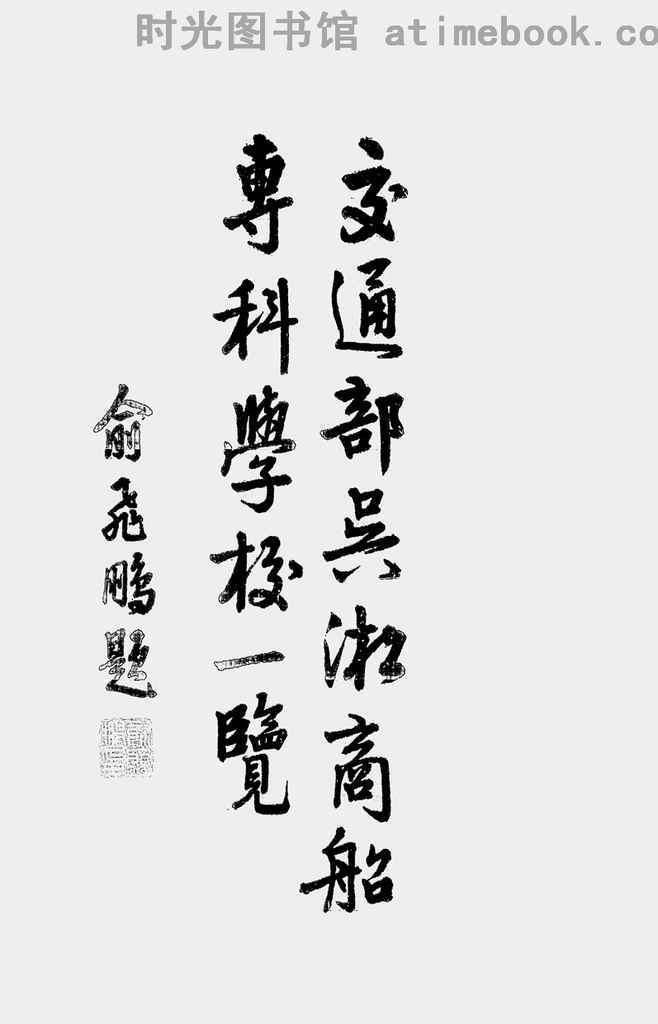 时光图书馆 atimebook.co
交通部吳淞商船
專科學校一覽
俞飛鵬題